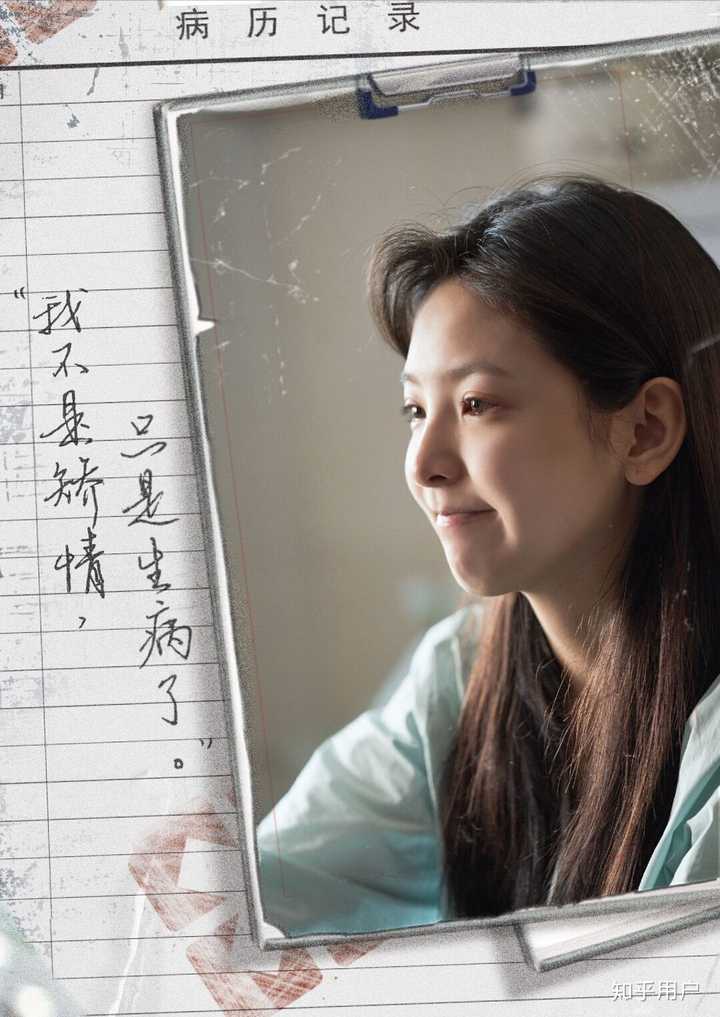 病历记录
“我不是矫情，
只是生病了。”
知乎用户